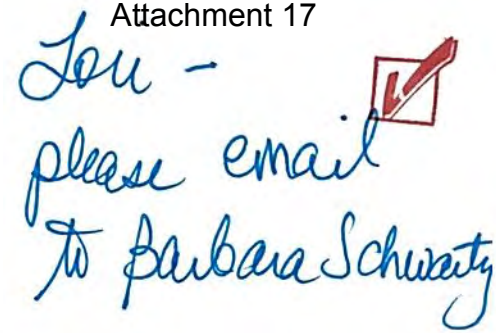 Attachment 17
Lori -
please email
to Barbara Schwartz